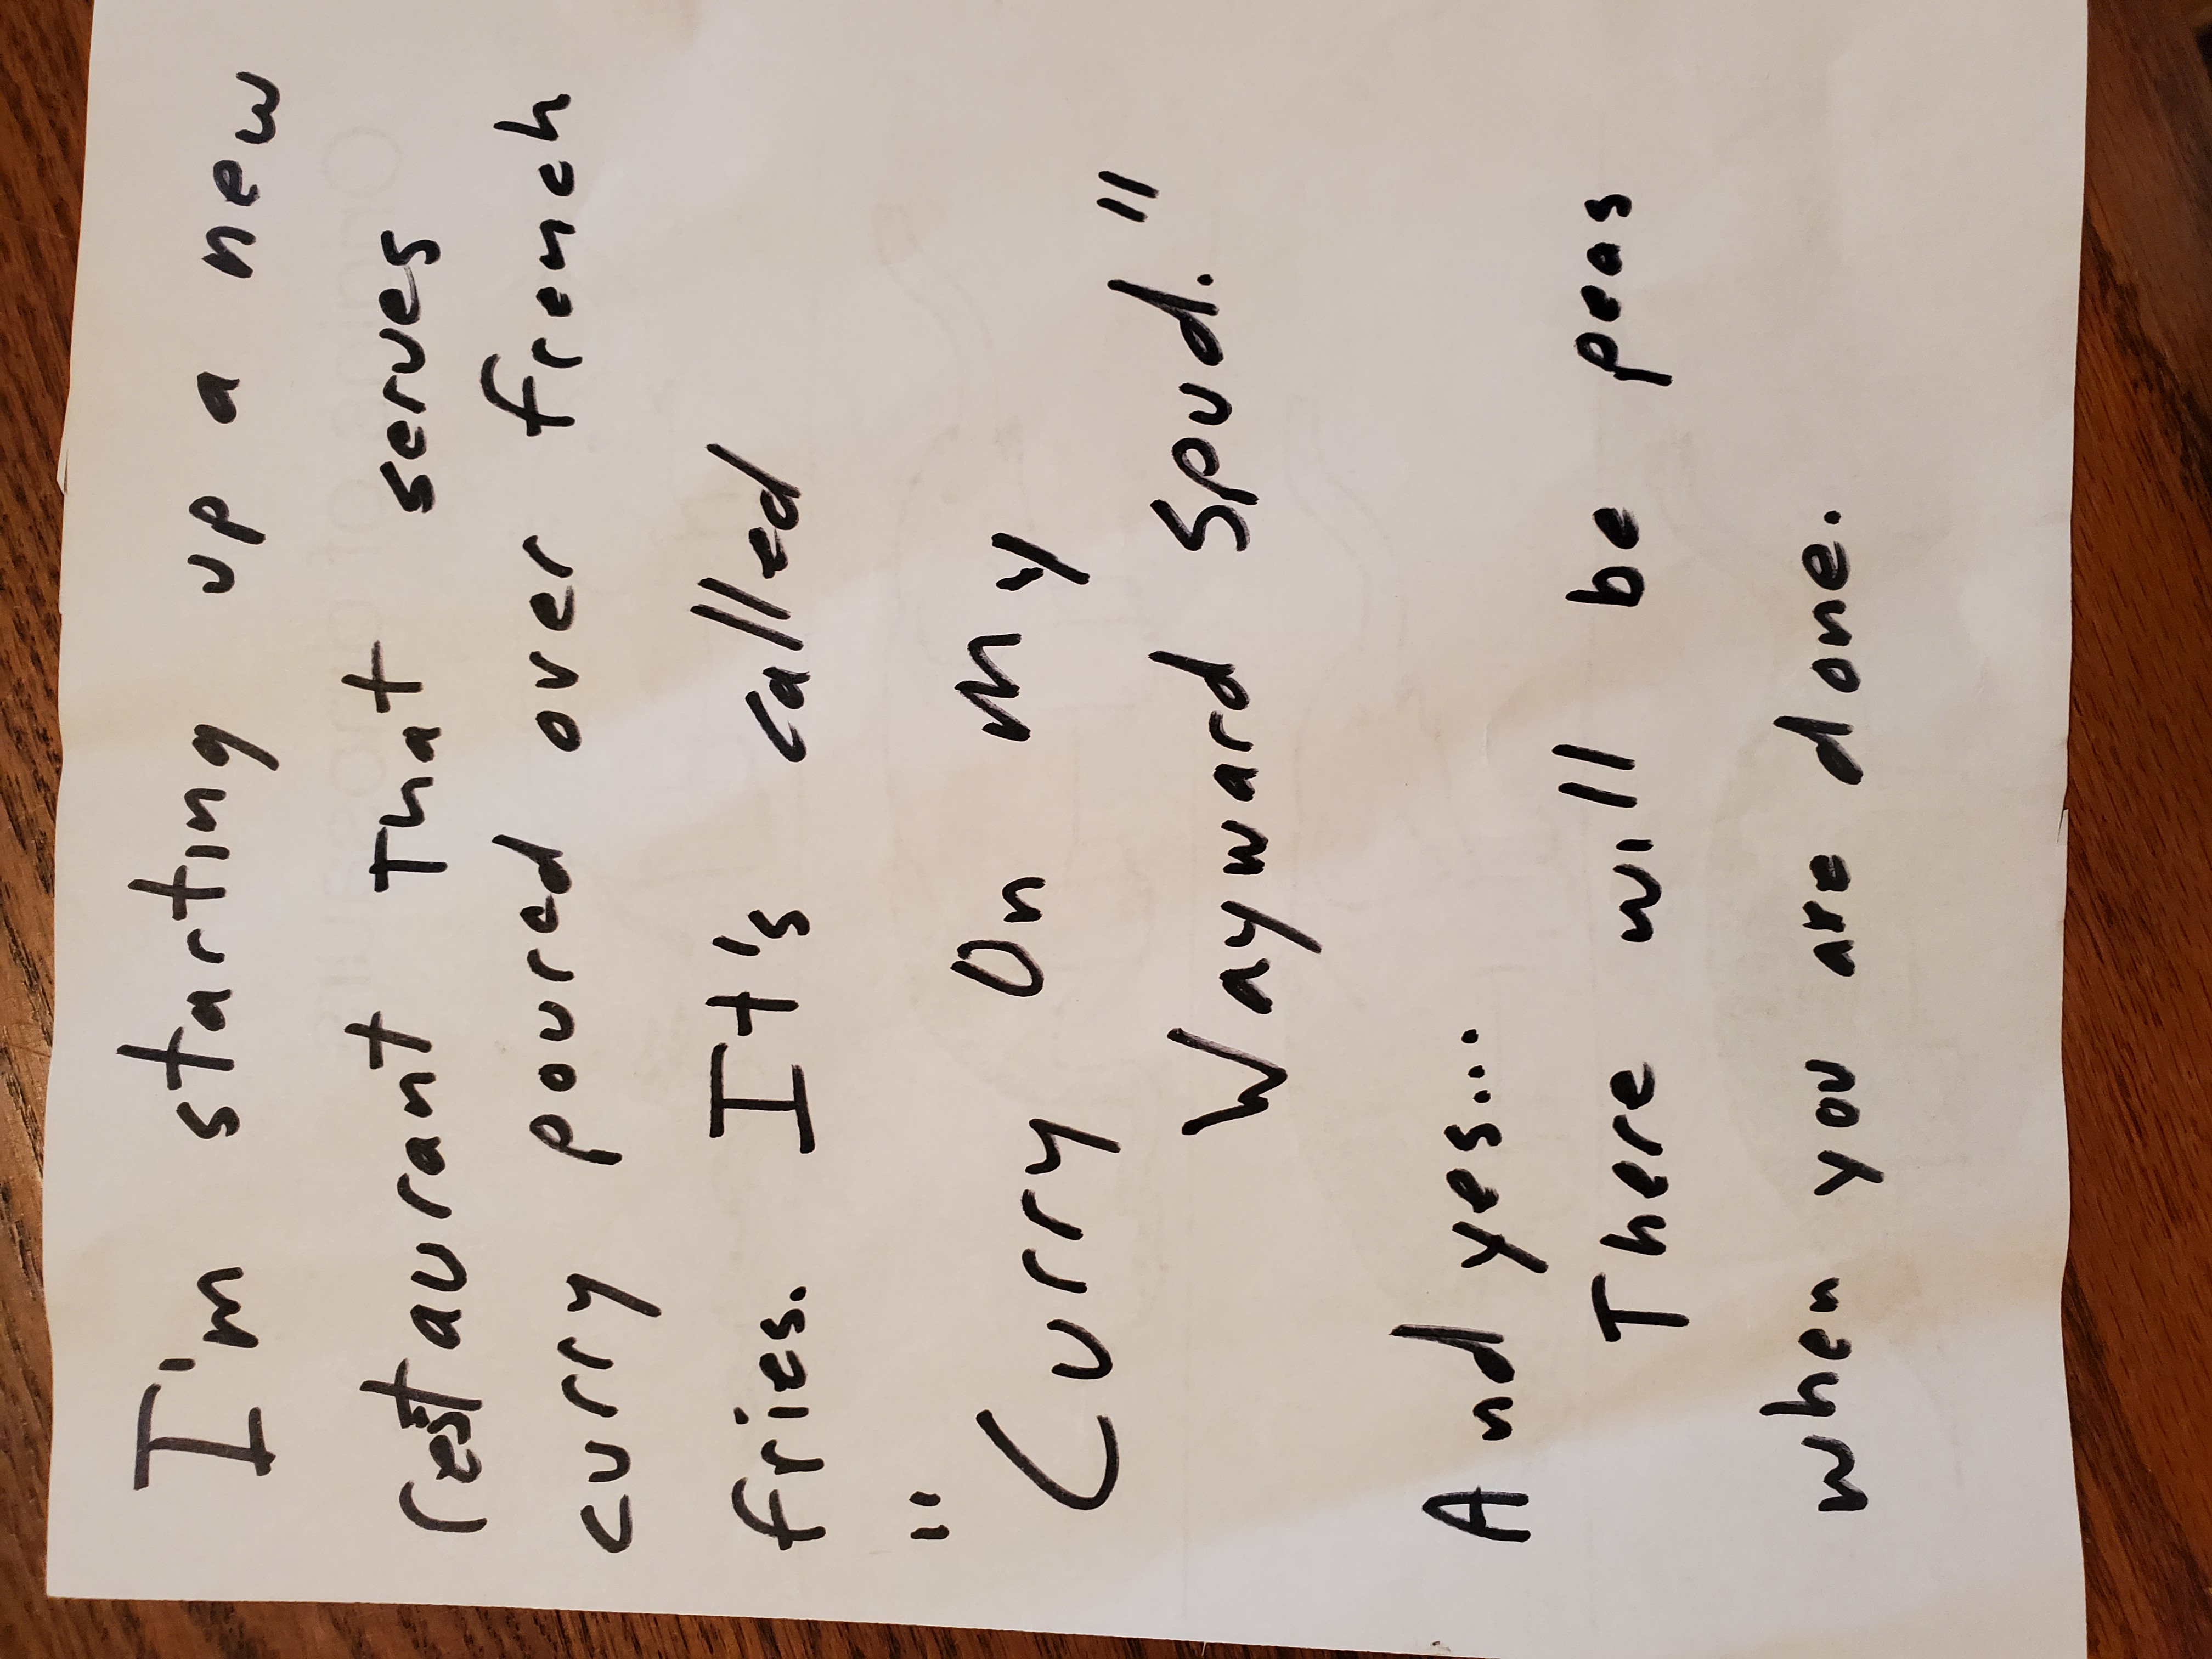 I'm starting up a new
restaurant that serves
curry poured over french
fries. It's called
"Curry On My
Wayward Spud."
And yes...
There will be peas
when you are done.